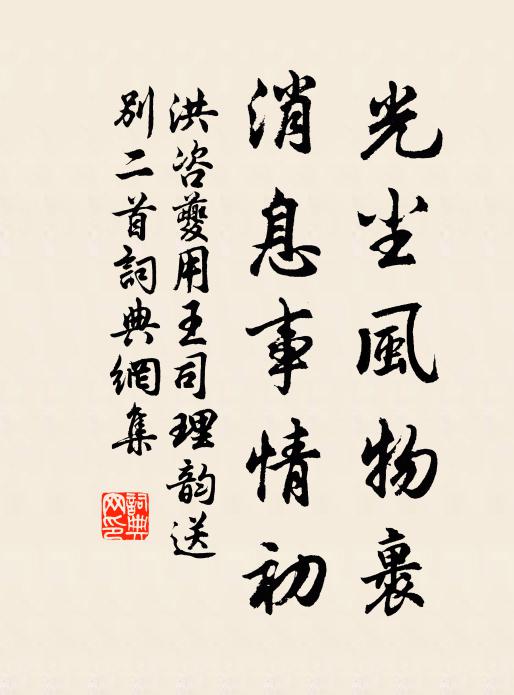 光尘風物裹
消息事情初
洪咨夔用王司理韵送
別二首詞典網集
詞典網印